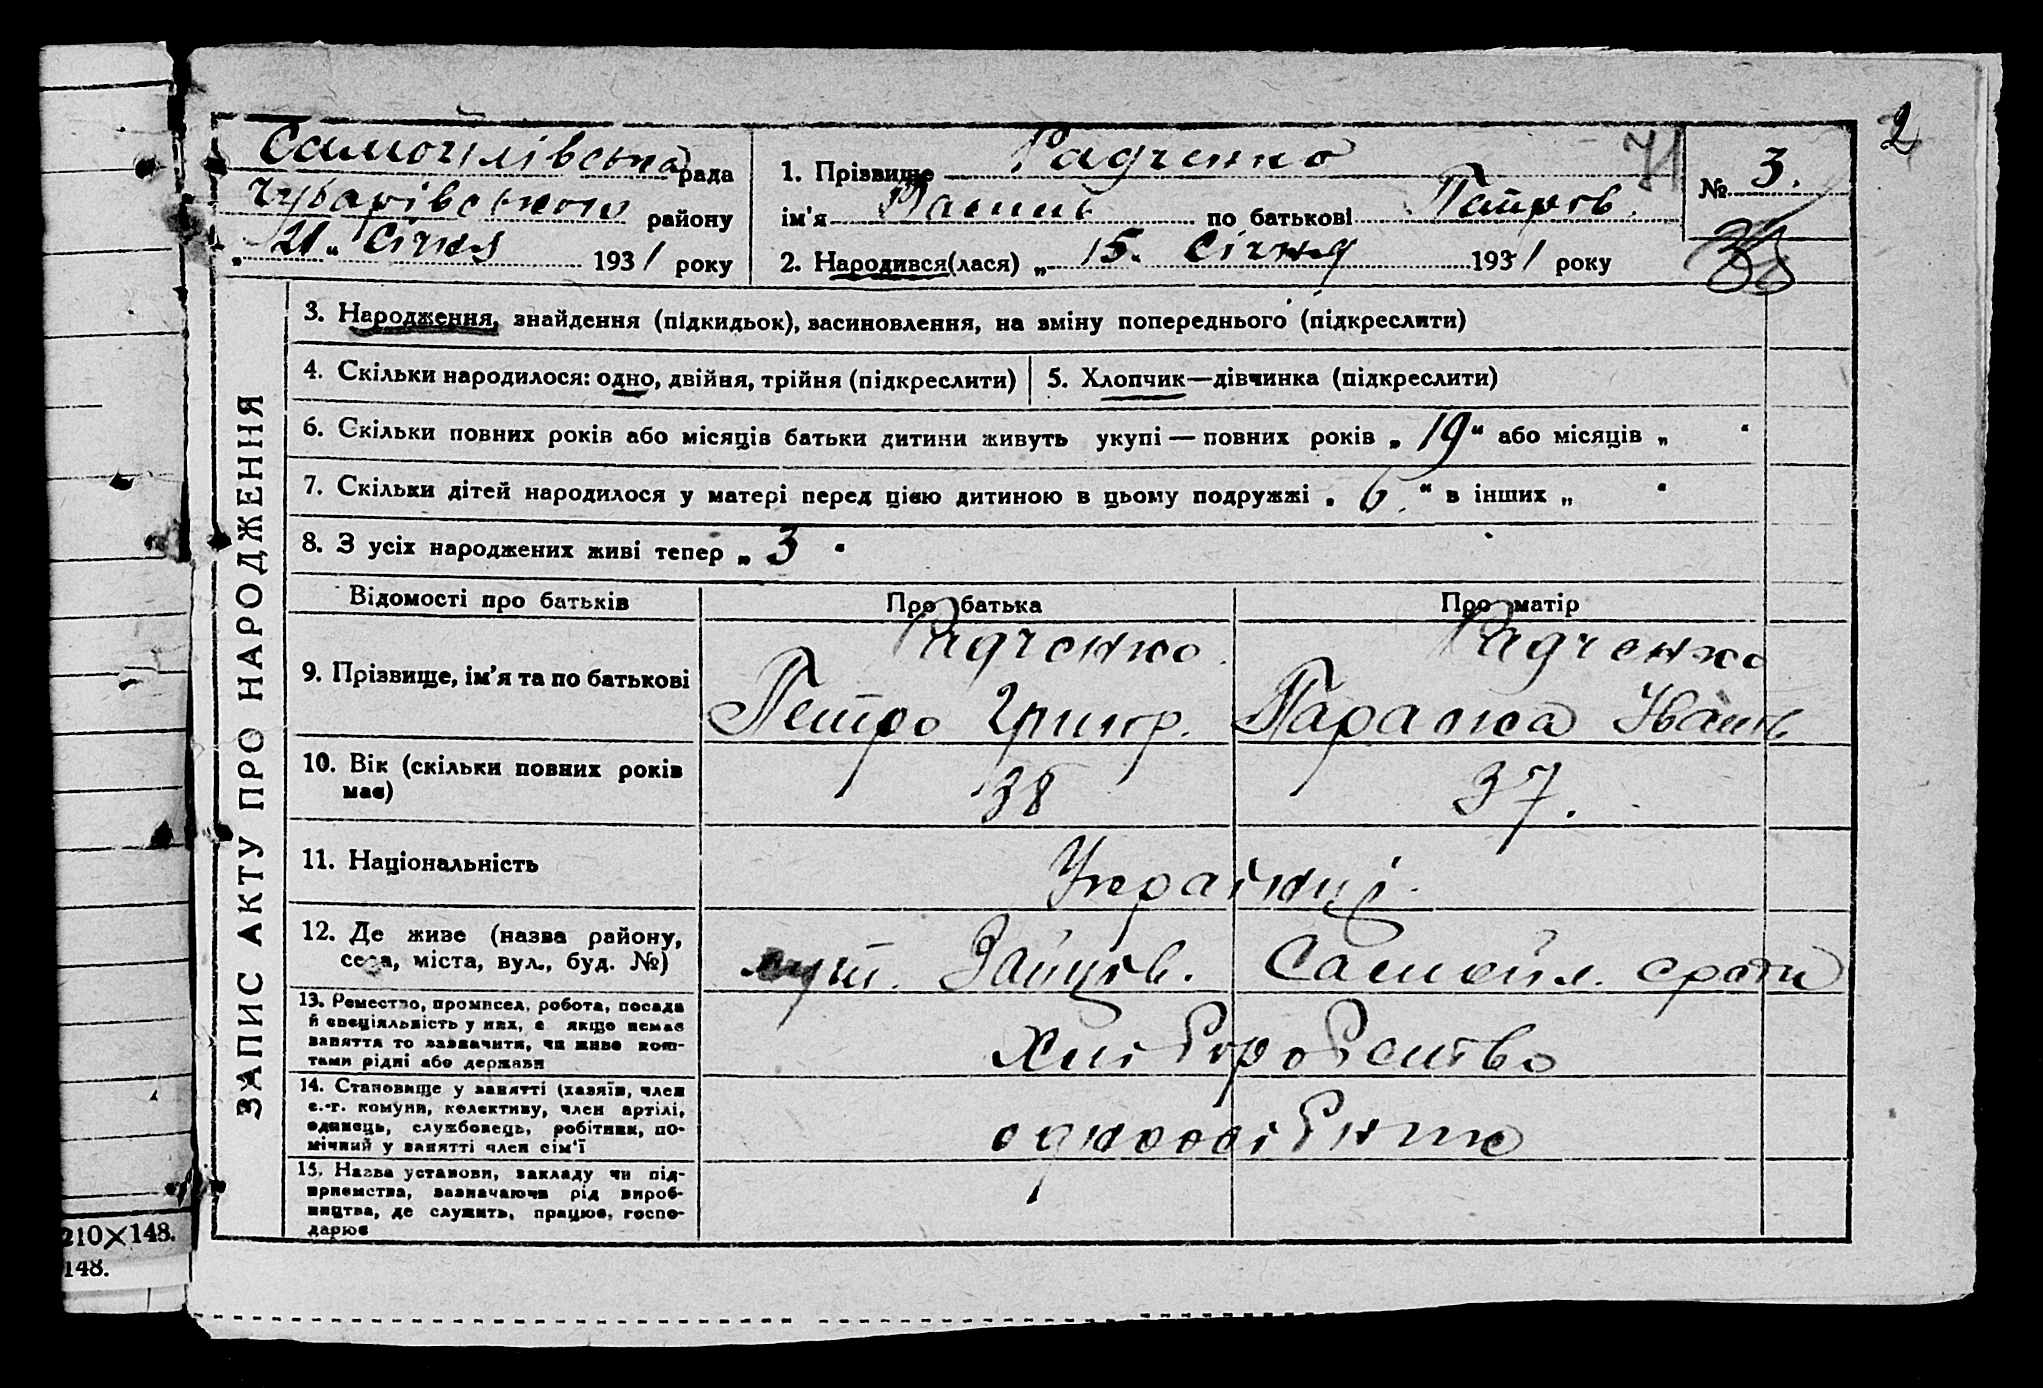 2
Самочилівська рада
Чубарівського району
„21“ Січня 1931 року
1. Прізвище Радченко 71
ім'я по батькові Петров.
2. Народився(лася) „15. Січня 1931 року
№ 3.
38
ЗАПИС АКТУ ПРО НАРОДЖЕННЯ
3. Народження, знайдення (підкидьок), засиновлення, на зміну попереднього (підкреслити)
4. Скільки народилося: одно, двійня, трійня (підкреслити)
5. Хлопчик—дівчинка (підкреслити)
6. Скільки повних років або місяців батьки дитини живуть укупі — повних років „19“ або місяців „ “
7. Скільки дітей народилося у матері перед цією дитиною в цьому подружжі „6.“ в інших „ “
8. З усіх народжених живі тепер „3“
Відомості про батьків Про батька Про матір
9. Прізвище, ім'я та по батькові
Радченко. Радченко
Петро Григ. Параска Іванів
10. Вік (скільки повних років має)
38 37.
11. Національність
Українці.
12. Де живе (назва району,
села, міста, вул., буд. №)
хут. Зайців. Самойл. сради
13. Ремество, промисел, робота, посада
й спеціяльність у них, є якщо немає
заняття то зазначити, чи живе кош-
тами рідні або держави
Хліборобство
14. Становище у занятті (хазяїн, член
с.-г. комуни, колективу, член артілі,
одинець, службовець, робітник, по-
мічний у занятті член сім'ї
одноосібник
15. Назва установи, закладу чи під-
приємства, зазначаючи рід вироб-
ництва, де служить, працює, госпо-
дарює
210×148.
148.